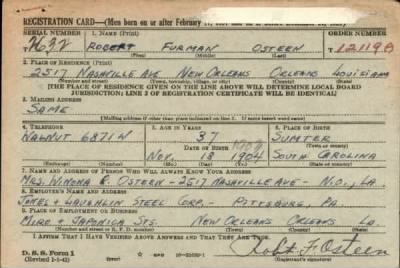 REGISTRATION CARD—(Men born on or after February
SERIAL NUMBER 1. NAME (Print) ORDER NUMBER
ROBERT FURMAN OSTEEN
(First) (Middle) (Last)
2. PLACE OF RESIDENCE (Print)
2517 NASHVILLE AVE NEW ORLEANS ORLEANS LOUISIANA
(Number and street) (Town, township, village, or city) (County) (State)
[THE PLACE OF RESIDENCE GIVEN ON THE LINE ABOVE WILL DETERMINE LOCAL BOARD
JURISDICTION; LINE 2 OF REGISTRATION CERTIFICATE WILL BE IDENTICAL]
3. MAILING ADDRESS
SAME
[Mailing address if other than place indicated on line 2. If same insert word same]
4. TELEPHONE 5. AGE IN YEARS 6. PLACE OF BIRTH
WALNUT 6871W 37 SUMTER
DATE OF BIRTH (Town or county)
NOV. 18 1904 SOUTH CAROLINA
(Exchange) (Number) (Mo.) (Day) (Yr.) (State or country)
7. NAME AND ADDRESS OF PERSON WHO WILL ALWAYS KNOW YOUR ADDRESS
MRS. WINONA R. OSTEEN - 2517 NASHVILLE AVE - N.O., LA
8. EMPLOYER'S NAME AND ADDRESS
JONES & LAUGHLIN STEEL CORP. - PITTSBURG, PA.
9. PLACE OF EMPLOYMENT OR BUSINESS
MIRO & JAPONICA STS. NEW ORLEANS ORLEANS LA
(Number and street or R. F. D. number) (Town) (County) (State)
I AFFIRM THAT I HAVE VERIFIED ABOVE ANSWERS AND THAT THEY ARE TRUE.
D. S. S. Form 1 Robt F. Osteen
(Revised 1-5-42) (over)